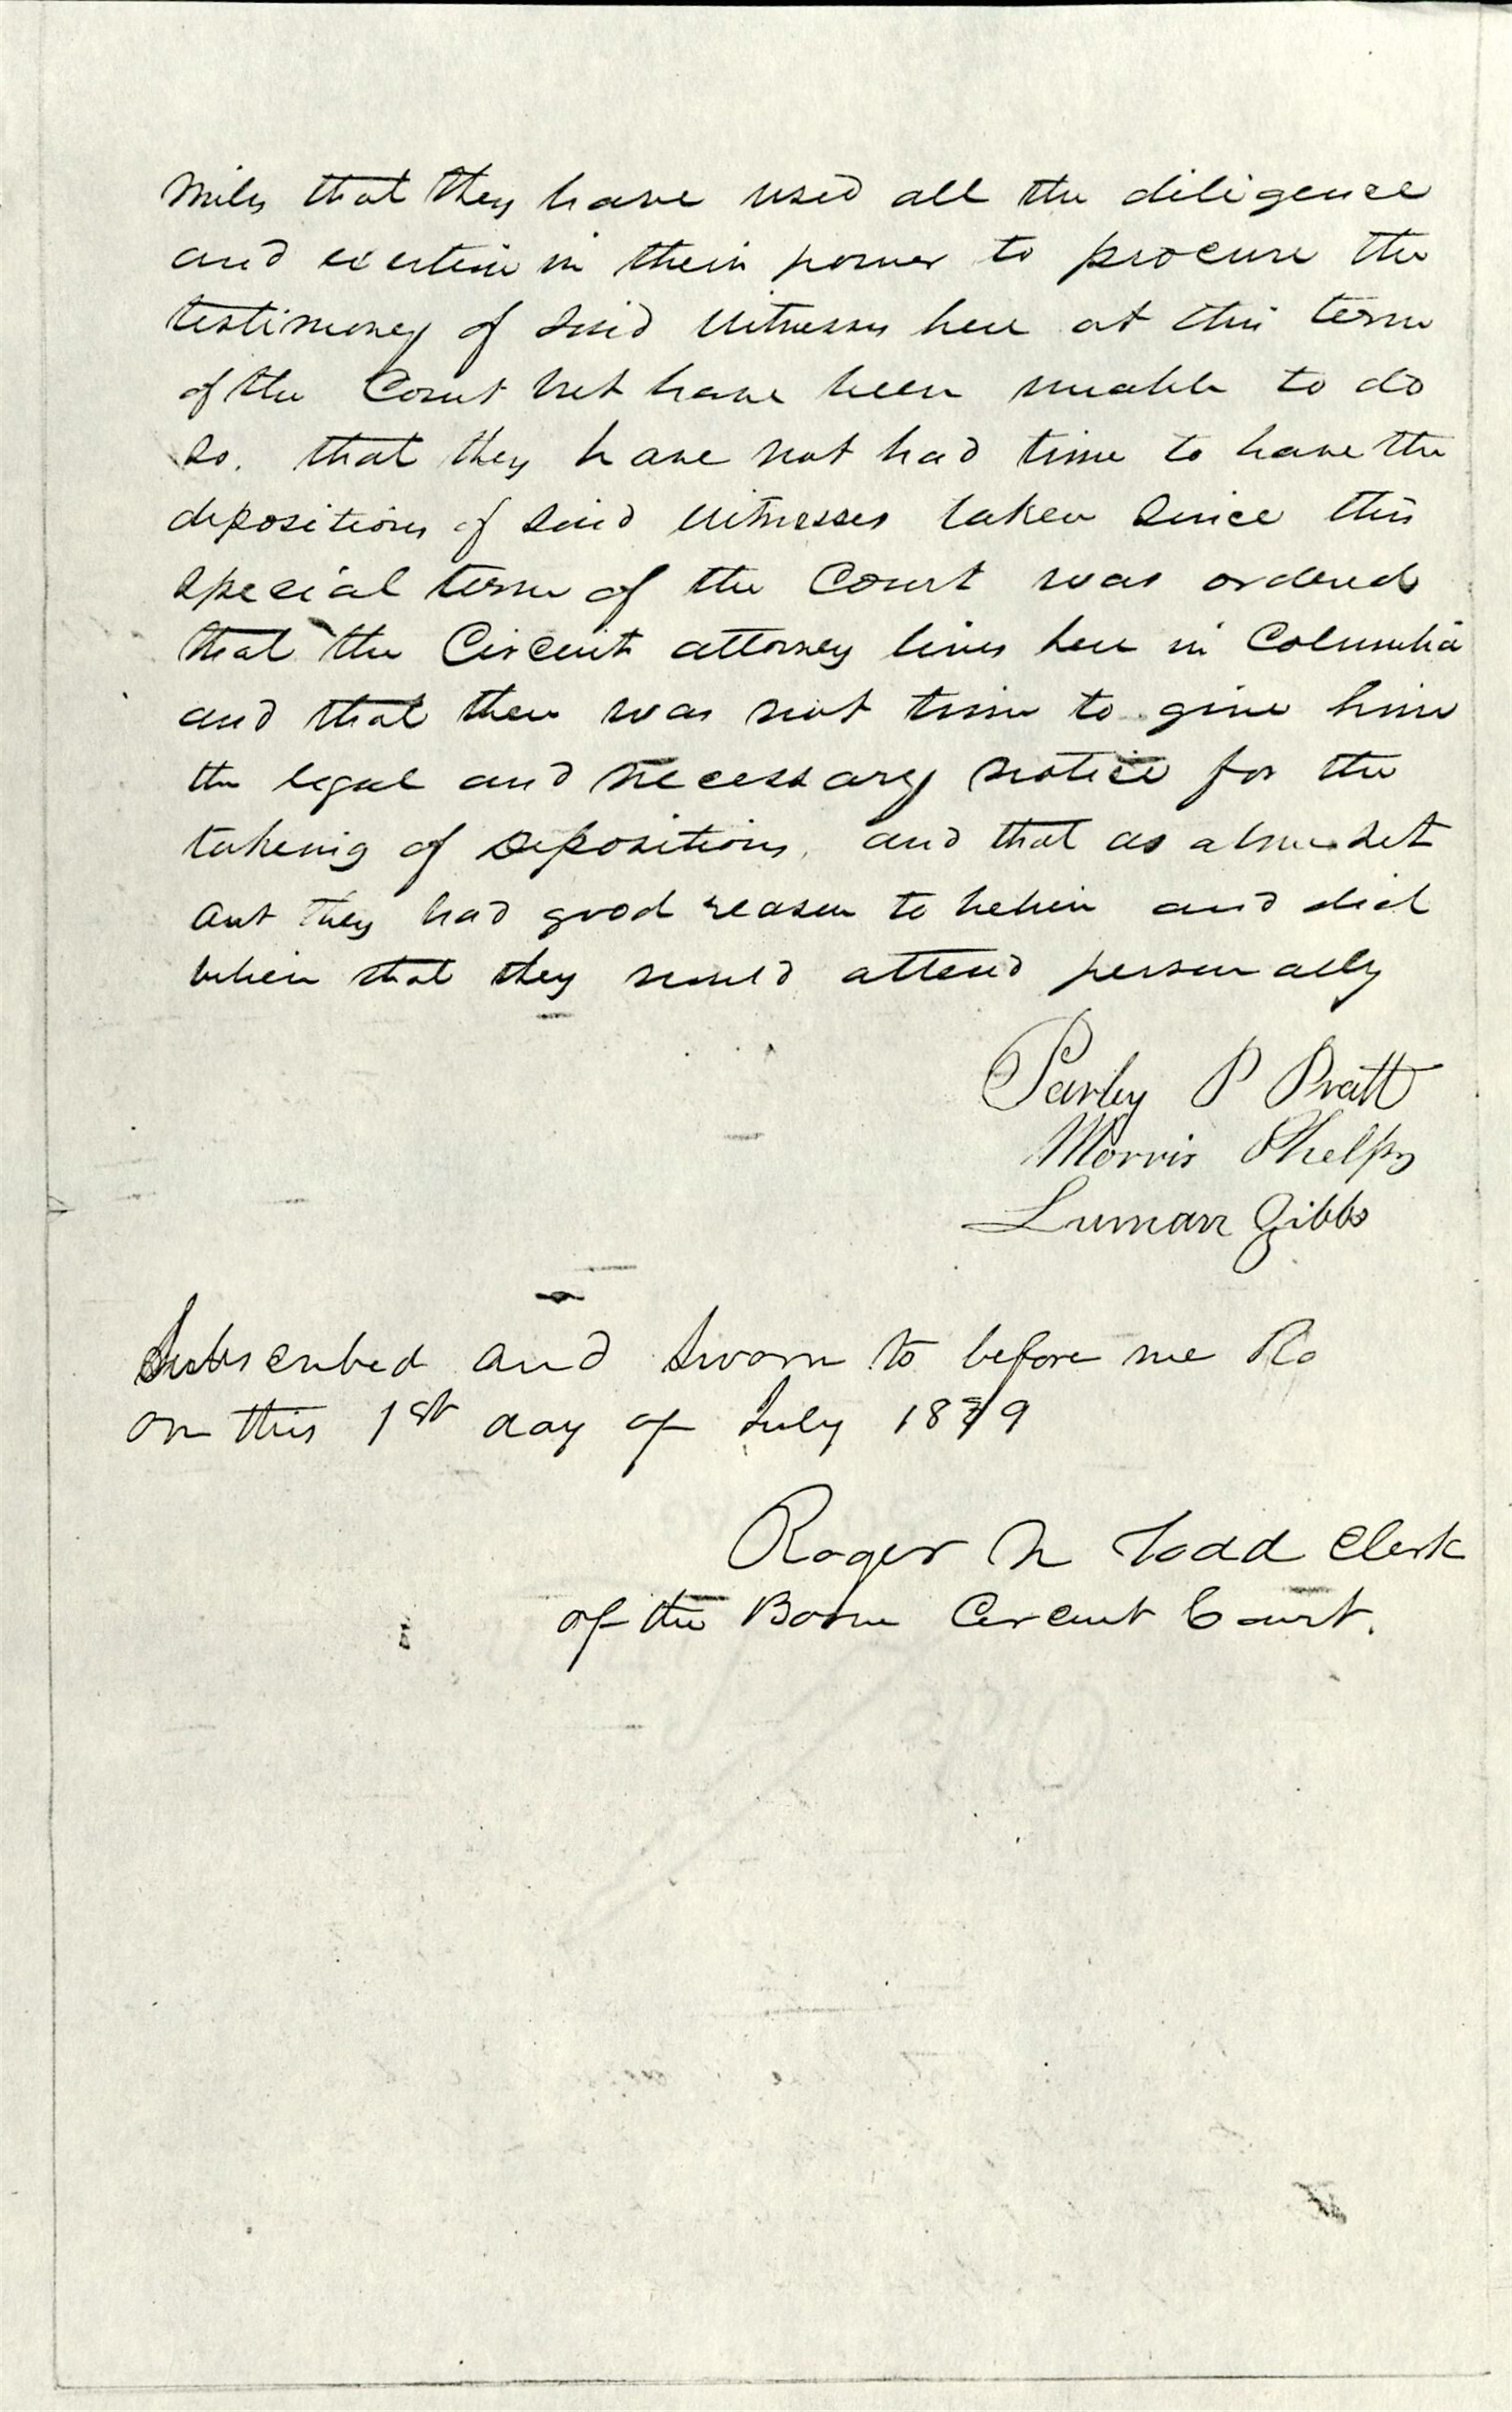 miles that they have used all the diligence
and exertion in their power to procure the
testimony of said witnesses here at this term
of the Court but have been unable to do
so. that they have not had time to have the
depositions of said witnesses taken since this
special term of the Court was ordered
that the Circuit attorney lives here in Columbia
and that there was not time to give him
the legal and necessary notice for the
takeing of depositions, and that as above set
out they had good reason to believe and did
believe that they would attend personally
Parley P Pratt
Morris Phelps
Luman Gibbs
Subscribed and sworn to before me Ro
on this 1st day of July 1839
Roger N Todd Clerk
of the Boone Circuit Court.